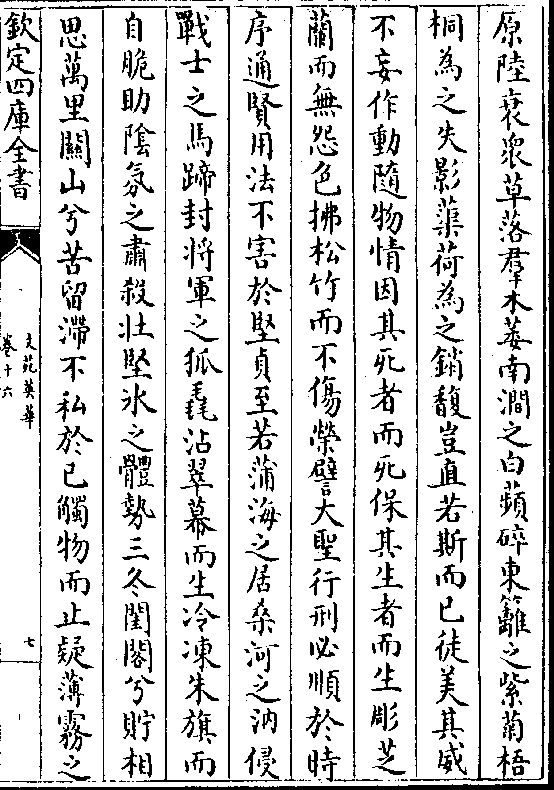 原陸衰衆草落羣木萎南澗之白蘋碎東籬之紫菊梧
桐為之失影蕖荷為之銷馥豈直若斯而已徒美其威
不妄作動隨物情因其死者而死保其生者而生彫芝
蘭而無怨色拂松竹而不傷榮譬大聖行刑必順於時
序通賢用法不害於堅貞至若蒲海之居桑河之汭侵
戰士之馬蹄封將軍之狐毳沾翠幕而生冷凍朱旗而
自脆助陰氛之肅殺壯堅冰之體勢三冬閨閣兮貯相
思萬里關山兮苦留滯不私於已觸物而止疑薄霧之
欽定四庫全書
文苑英華
卷十六
七